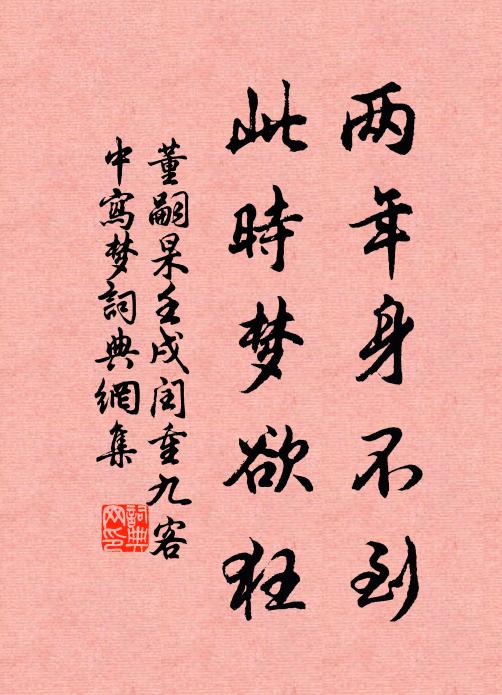 两年身不到
此時梦欲狂
董嗣杲壬戌闰重九客
中寫梦詞典網集
詞典
网印